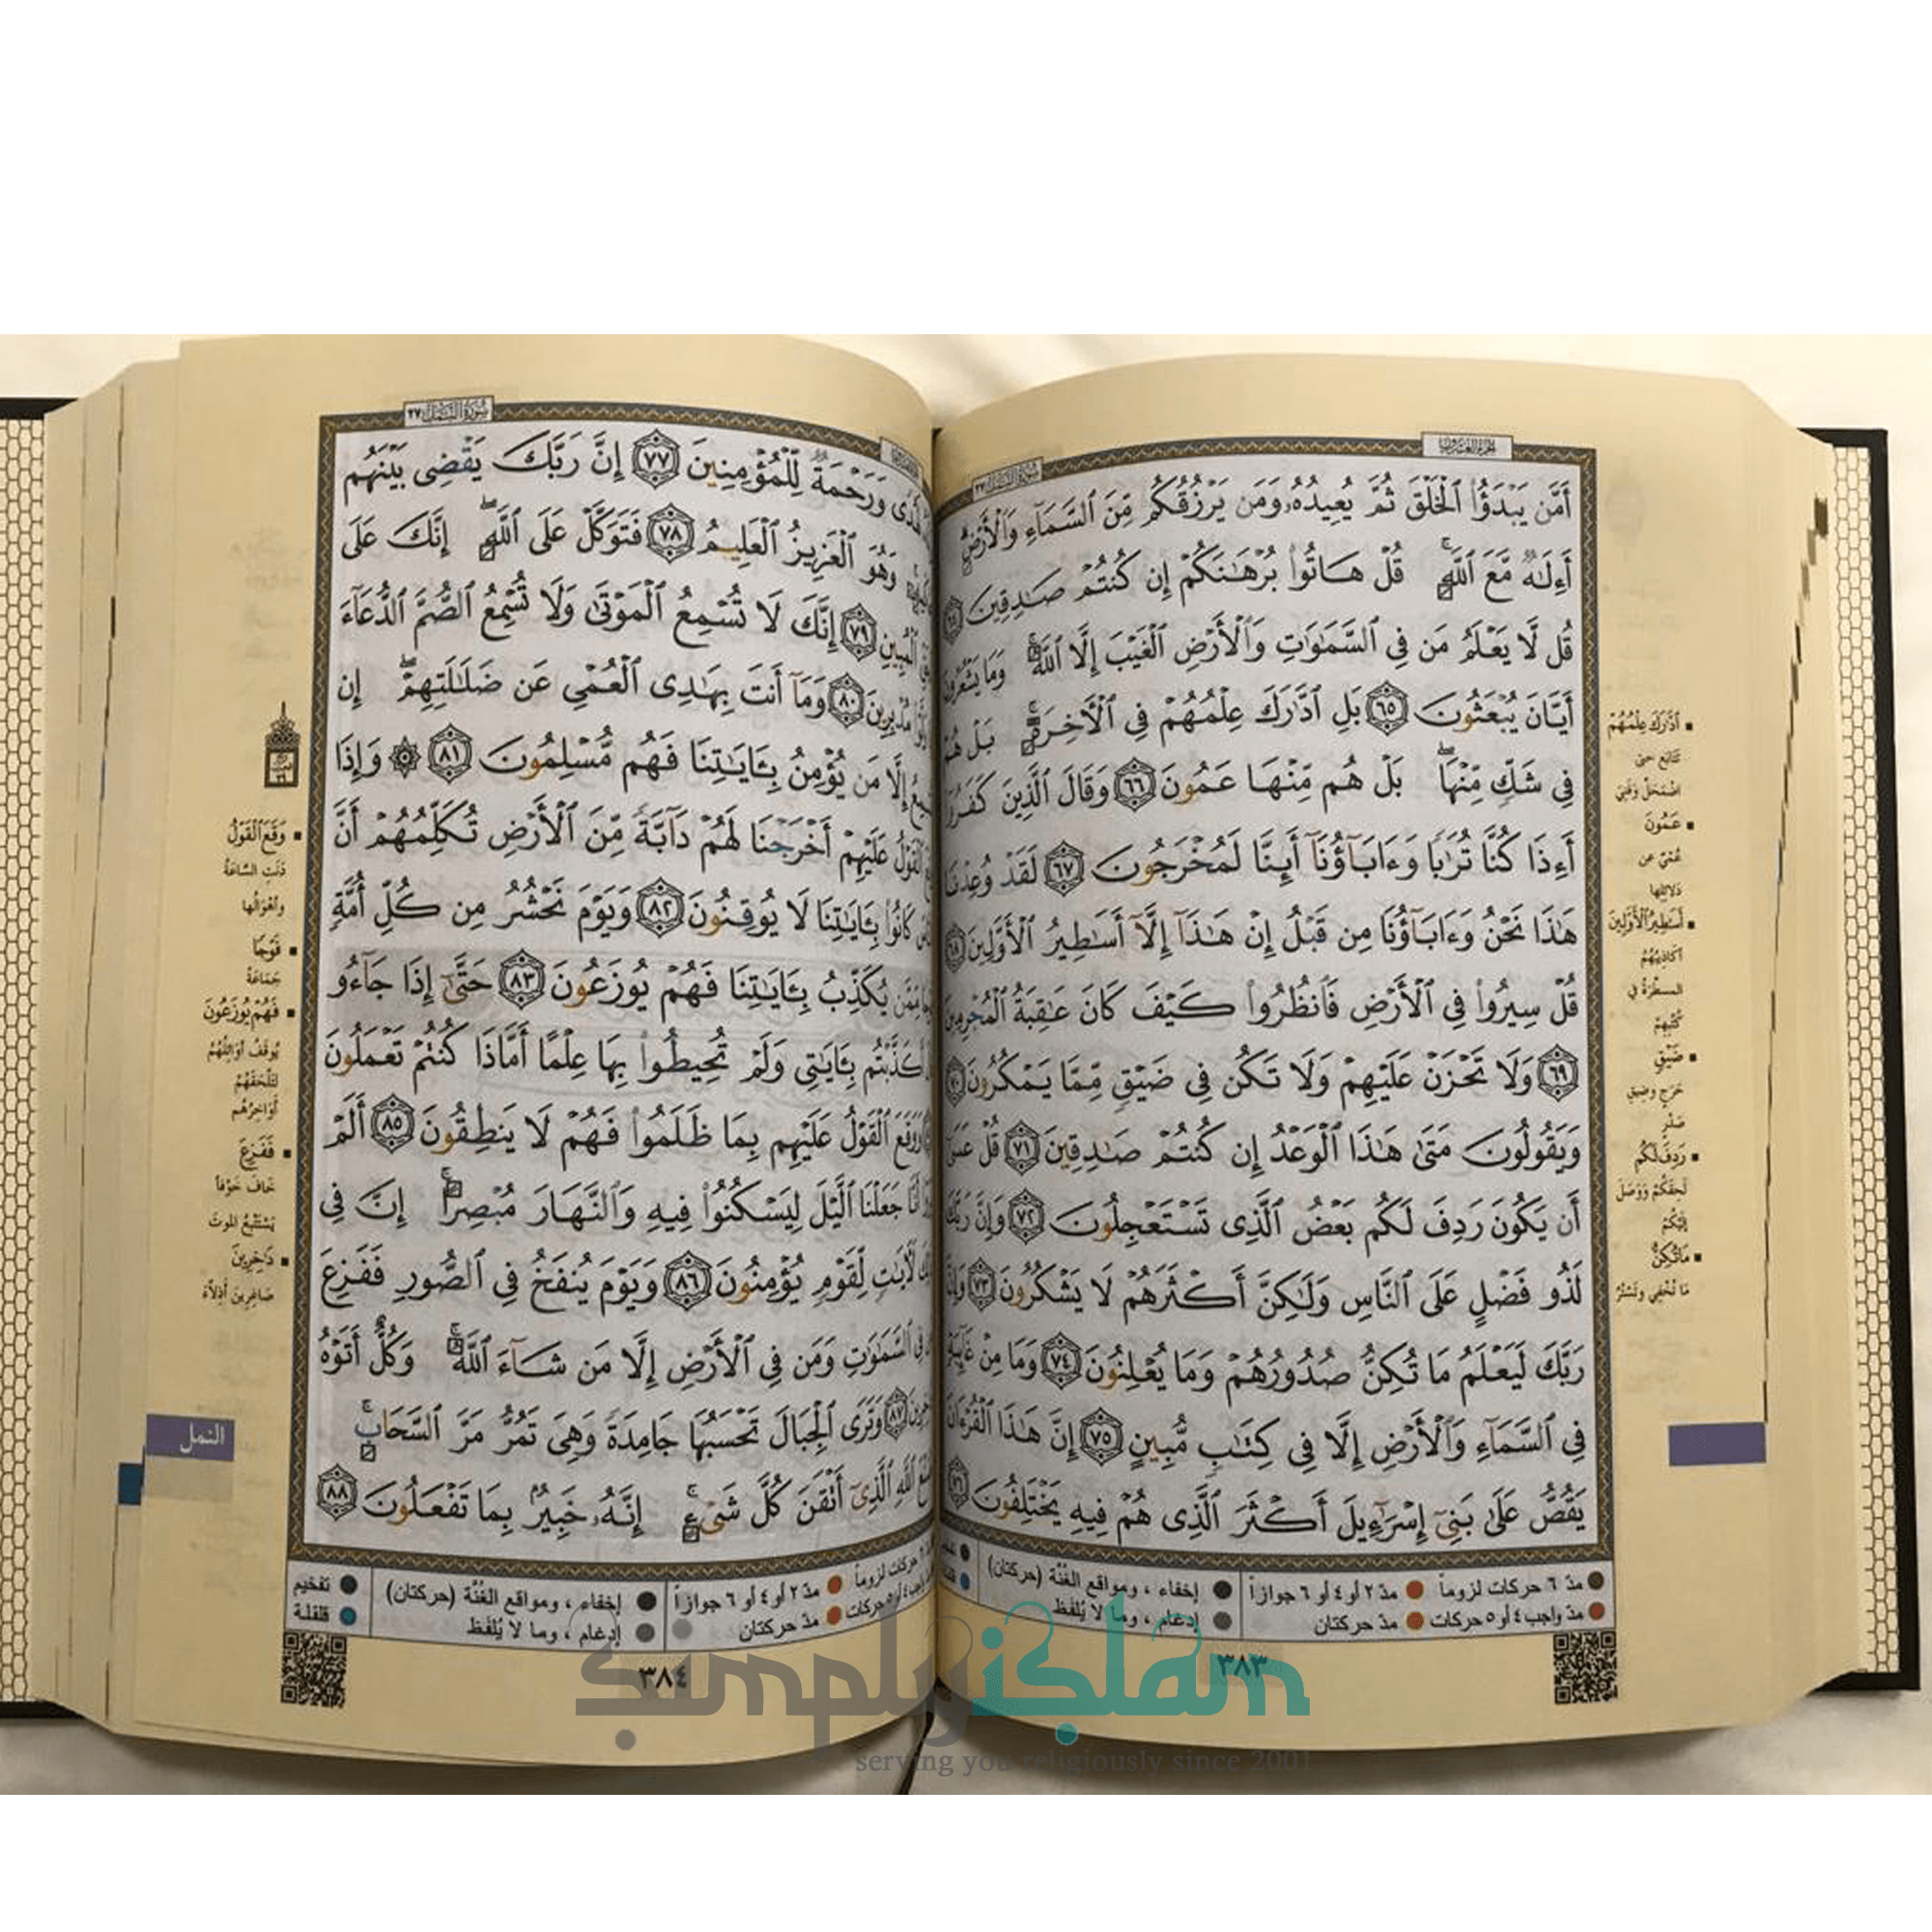 الجزء العشرون
سُورَةُ النَّمْلِ ٢٧
أَمَّن يَبْدَؤُا۟ ٱلْخَلْقَ ثُمَّ يُعِيدُهُۥ وَمَن يَرْزُقُكُم مِّنَ ٱلسَّمَآءِ وَٱلْأَرْضِ
أَءِلَٰهٌ مَّعَ ٱللَّهِ ۚ قُلْ هَاتُوا۟ بُرْهَٰنَكُمْ إِن كُنتُمْ صَٰدِقِينَ ٦٤
قُل لَّا يَعْلَمُ مَن فِى ٱلسَّمَٰوَٰتِ وَٱلْأَرْضِ ٱلْغَيْبَ إِلَّا ٱللَّهُ ۚ وَمَا يَشْعُرُونَ
أَيَّانَ يُبْعَثُونَ ٦٥ بَلِ ٱدَّٰرَكَ عِلْمُهُمْ فِى ٱلْءَاخِرَةِ ۚ بَلْ هُمْ
فِى شَكٍّ مِّنْهَا ۖ بَلْ هُم مِّنْهَا عَمُونَ ٦٦ وَقَالَ ٱلَّذِينَ كَفَرُوٓا۟
أَءِذَا كُنَّا تُرَٰبًا وَءَابَآؤُنَآ أَئِنَّا لَمُخْرَجُونَ ٦٧ لَقَدْ وُعِدْنَا
هَٰذَا نَحْنُ وَءَابَآؤُنَا مِن قَبْلُ إِنْ هَٰذَآ إِلَّآ أَسَٰطِيرُ ٱلْأَوَّلِينَ ٦٨
قُلْ سِيرُوا۟ فِى ٱلْأَرْضِ فَٱنظُرُوا۟ كَيْفَ كَانَ عَٰقِبَةُ ٱلْمُجْرِمِينَ
٦٩ وَلَا تَحْزَنْ عَلَيْهِمْ وَلَا تَكُن فِى ضَيْقٍ مِّمَّا يَمْكُرُونَ ٧٠
وَيَقُولُونَ مَتَىٰ هَٰذَا ٱلْوَعْدُ إِن كُنتُمْ صَٰدِقِينَ ٧١ قُلْ عَسَىٰٓ
أَن يَكُونَ رَدِفَ لَكُم بَعْضُ ٱلَّذِى تَسْتَعْجِلُونَ ٧٢ وَإِنَّ رَبَّكَ
لَذُو فَضْلٍ عَلَى ٱلنَّاسِ وَلَٰكِنَّ أَكْثَرَهُمْ لَا يَشْكُرُونَ ٧٣ وَإِنَّ
رَبَّكَ لَيَعْلَمُ مَا تُكِنُّ صُدُورُهُمْ وَمَا يُعْلِنُونَ ٧٤ وَمَا مِنْ غَآئِبَةٍ
فِى ٱلسَّمَآءِ وَٱلْأَرْضِ إِلَّا فِى كِتَٰبٍ مُّبِينٍ ٧٥ إِنَّ هَٰذَا ٱلْقُرْءَانَ
يَقُصُّ عَلَىٰ بَنِىٓ إِسْرَٰٓءِيلَ أَكْثَرَ ٱلَّذِى هُمْ فِيهِ يَخْتَلِفُونَ ٧٦
أَدَّارَكَ عِلْمُهُمْ
تَتَابَعَ حتى
اضْمَحَلَّ وَفَنِيَ
عَمُونَ
عُمْيٌ عن
دَلائِلِها
أَسَٰطِيرُ ٱلْأَوَّلِينَ
أكاذِيبُهُمُ
المسطَّرَةُ في
كُتُبِهِمْ
ضَيْقٍ
حَرَجٍ وضِيقِ
صَدْرٍ
رَدِفَ لَكُم
لَحِقَكُمْ وَوَصَلَ
إِلَيْكُمْ
مَا تُكِنُّ
مَا تُخْفِي وتَسْتُرُ
مدّ ٦ حركات لزوماً
مدّ ٢ أو ٤ أو ٦ جوازاً
إخفاء ، ومواقع الغُنَّة (حركتان)
مدّ واجب ٤ أو ٥ حركات
مدّ حركتان
إدغام ، وما لا يُلفَظ
٣٨٣
سُورَةُ النَّمْلِ ٢٧
وَرَحْمَةٌ لِّلْمُؤْمِنِينَ ٧٧ إِنَّ رَبَّكَ يَقْضِى بَيْنَهُم
وَهُوَ ٱلْعَزِيزُ ٱلْعَلِيمُ ٧٨ فَتَوَكَّلْ عَلَى ٱللَّهِ ۖ إِنَّكَ عَلَى
ٱلْمُبِينِ ٧٩ إِنَّكَ لَا تُسْمِعُ ٱلْمَوْتَىٰ وَلَا تُسْمِعُ ٱلصُّمَّ ٱلدُّعَآءَ
مُدْبِرِينَ ٨٠ وَمَآ أَنتَ بِهَٰدِى ٱلْعُمْىِ عَن ضَلَٰلَتِهِمْ ۖ إِن
إِلَّا مَن يُؤْمِنُ بِـَٔايَٰتِنَا فَهُم مُّسْلِمُونَ ٨١ ۞ وَإِذَا
ٱلْقَوْلُ عَلَيْهِمْ أَخْرَجْنَا لَهُمْ دَآبَّةً مِّنَ ٱلْأَرْضِ تُكَلِّمُهُمْ أَنَّ
كَانُوا۟ بِـَٔايَٰتِنَا لَا يُوقِنُونَ ٨٢ وَيَوْمَ نَحْشُرُ مِن كُلِّ أُمَّةٍ
مِّمَّن يُكَذِّبُ بِـَٔايَٰتِنَا فَهُمْ يُوزَعُونَ ٨٣ حَتَّىٰٓ إِذَا جَآءُو
أَكَذَّبْتُم بِـَٔايَٰتِى وَلَمْ تُحِيطُوا۟ بِهَا عِلْمًا أَمَّاذَا كُنتُمْ تَعْمَلُونَ
وَوَقَعَ ٱلْقَوْلُ عَلَيْهِم بِمَا ظَلَمُوا۟ فَهُمْ لَا يَنطِقُونَ ٨٥ أَلَمْ
أَنَّا جَعَلْنَا ٱلَّيْلَ لِيَسْكُنُوا۟ فِيهِ وَٱلنَّهَارَ مُبْصِرًا ۚ إِنَّ فِى
لَءَايَٰتٍ لِّقَوْمٍ يُؤْمِنُونَ ٨٦ وَيَوْمَ يُنفَخُ فِى ٱلصُّورِ فَفَزِعَ
فِى ٱلسَّمَٰوَٰتِ وَمَن فِى ٱلْأَرْضِ إِلَّا مَن شَآءَ ٱللَّهُ ۚ وَكُلٌّ أَتَوْهُ
٨٧ وَتَرَى ٱلْجِبَالَ تَحْسَبُهَا جَامِدَةً وَهِىَ تَمُرُّ مَرَّ ٱلسَّحَابِ ۚ
ٱللَّهِ ٱلَّذِىٓ أَتْقَنَ كُلَّ شَىْءٍ ۚ إِنَّهُۥ خَبِيرٌۢ بِمَا تَفْعَلُونَ ٨٨
وَقَعَ ٱلْقَوْلُ
دَنَتِ السَّاعَةُ
وأهْوَالُها
فَوْجًا
جَمَاعَةً
فَهُمْ يُوزَعُونَ
يُوقَفُ أوَائِلُهُمْ
لِتَلْحَقَهُمْ
أَوَاخِرُهُم
فَفَزِعَ
خَافَ خَوْفاً
يَسْتَتْبِعُ الموتَ
دَٰخِرِينَ
صَاغِرِينَ أَذِلاَّءَ
النمل
حركات لزوماً
مدّ ٢ أو ٤ أو ٦ جوازاً
إخفاء ، ومواقع الغُنَّة (حركتان)
تفخيم
واجب ٤ أو ٥ حركات
مدّ حركتان
إدغام ، وما لا يُلفَظ
قلقلة
٣٨٤
simplyislam
serving you religiously since 2001